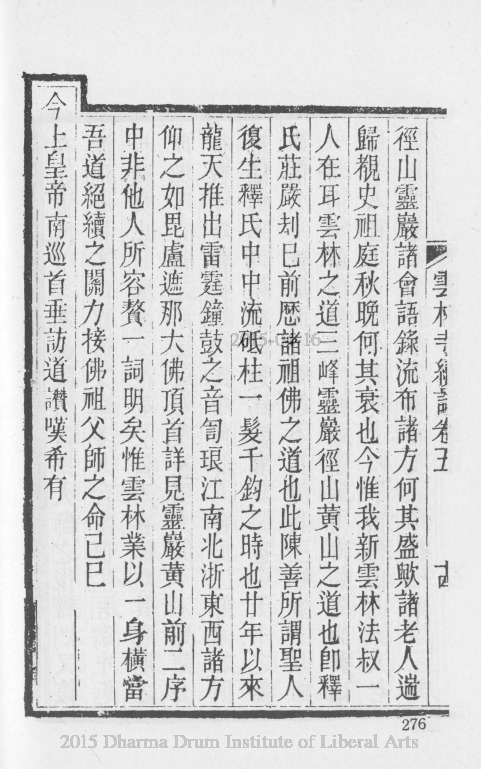 雲林寺續誌卷五
十四
徑山靈巖諸會語錄流布諸方何其盛歟諸老人遄
歸覩史祖庭秋晚何其衰也今惟我新雲林法叔一
人在耳雲林之道三峰靈巖徑山黄山之道也卽釋
氏莊嚴刦巳前歷諸祖佛之道也此陳善所謂聖人
復生釋氏中中流砥柱一髮千鈞之時也廿年以來
龍天推出雷霆鐘鼓之音訇琅江南北浙東西諸方
仰之如毘盧遮那大佛頂首詳見靈巖黄山前二序
中非他人所容贅一詞明矣惟雲林業以一身橫當
吾道絕續之關力接佛祖父師之命己巳
今上皇帝南巡首垂訪道讚嘆希有
276
2015 Dharma Drum Institute of Liberal Arts